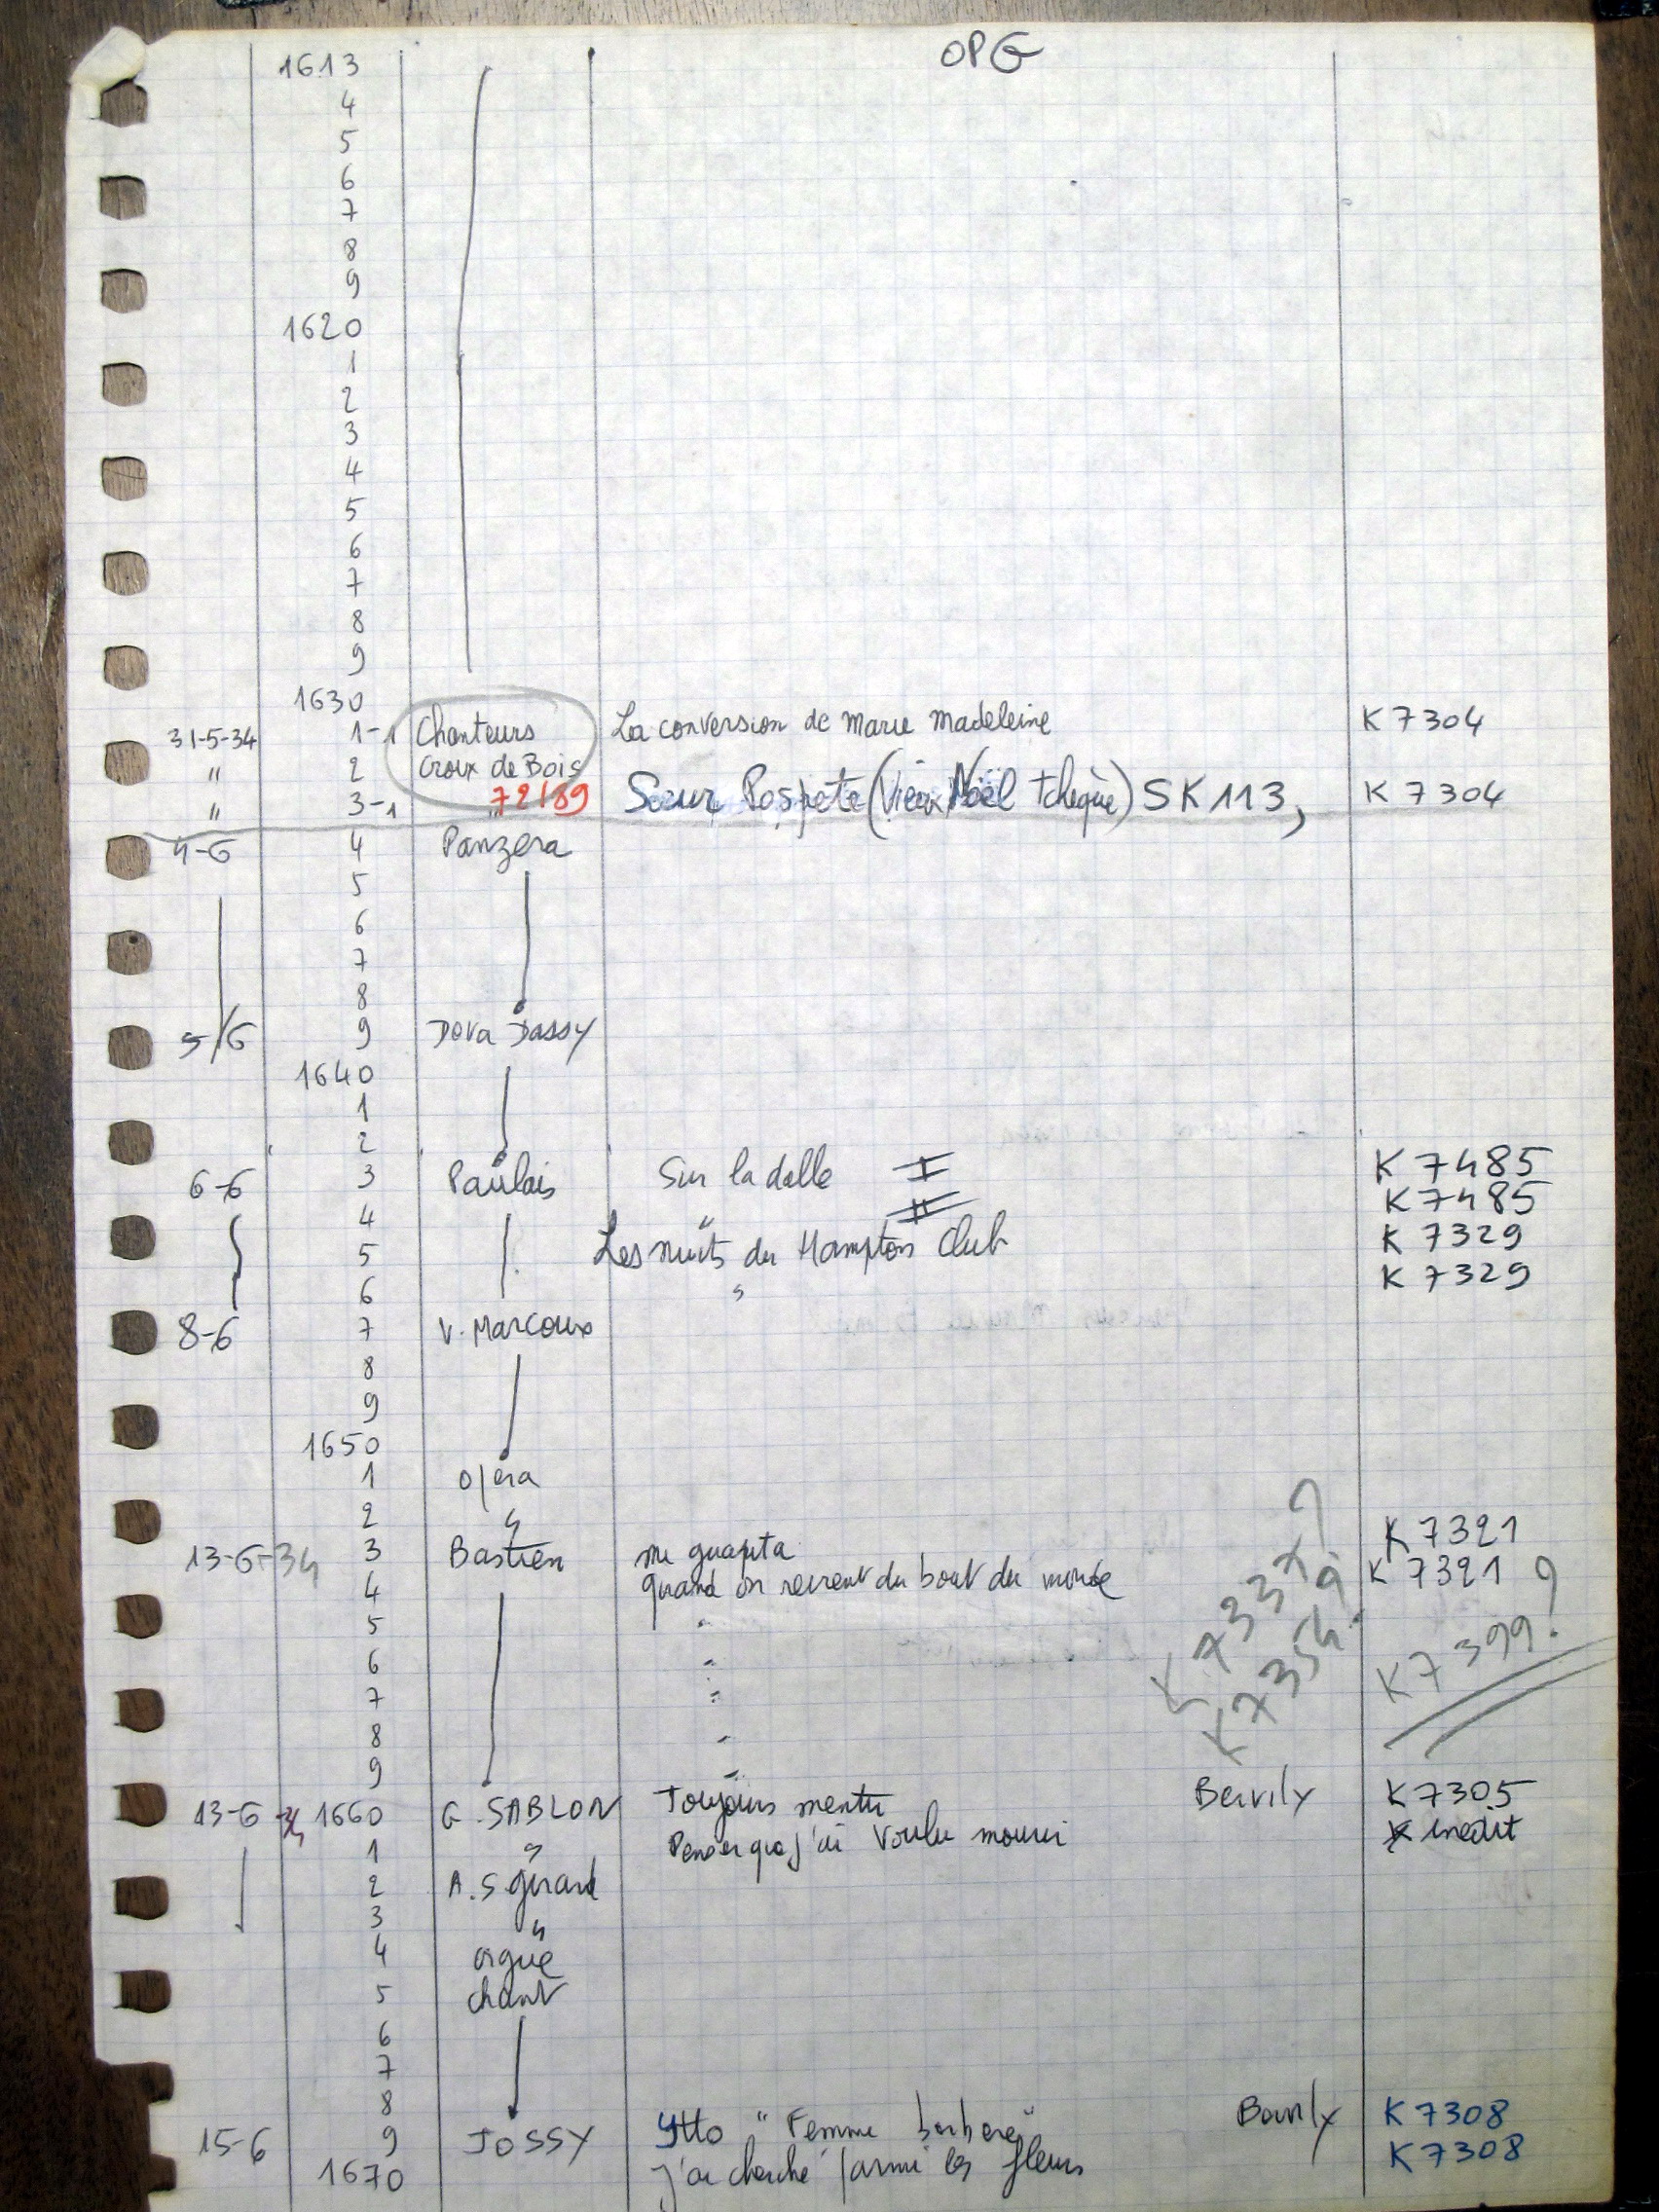 OPG
1613
4
5
6
7
8
9
1620
1
2
3
4
5
6
7
8
9
1630
31-5-34 1-1 Chanteurs La conversion de Marie Madeleine K 7304
" 2 Croix de Bois
" 3-1 " 72189 Sœur (Vieux Noël tchèque) SK 113, K 7304
4-6 4 Panzera
5
6
7
8
5/6 9 Dora Dassy
1640
1
2
6-6 3 Paulais Sur la dalle I K 7485
4 " II K 7485
5 Les nuits du Hampton Club K 7329
6 " K 7329
8-6 7 V. Marcoux
8
9
1650
1 Opera
2 "
13-6-34 3 Bastien me guapita K 7321
4 quand on revient du bout du monde K 7321
5 "
6 "
7 "
8 "
9 "
K 7337?
K 7354?
K 7399?
13-6-34 1660 G. SABLON Toujours mentir Bervily K 7305
1 " Penser que j'ai voulu mourir inédit
2 A. S. Girard
3 "
4 orgue
5 chant
6
7
8
15-6 9 JOSSY Ytto "Femme berbere" Bervily K 7308
1670 j'ai cherché parmi les fleurs K 7308